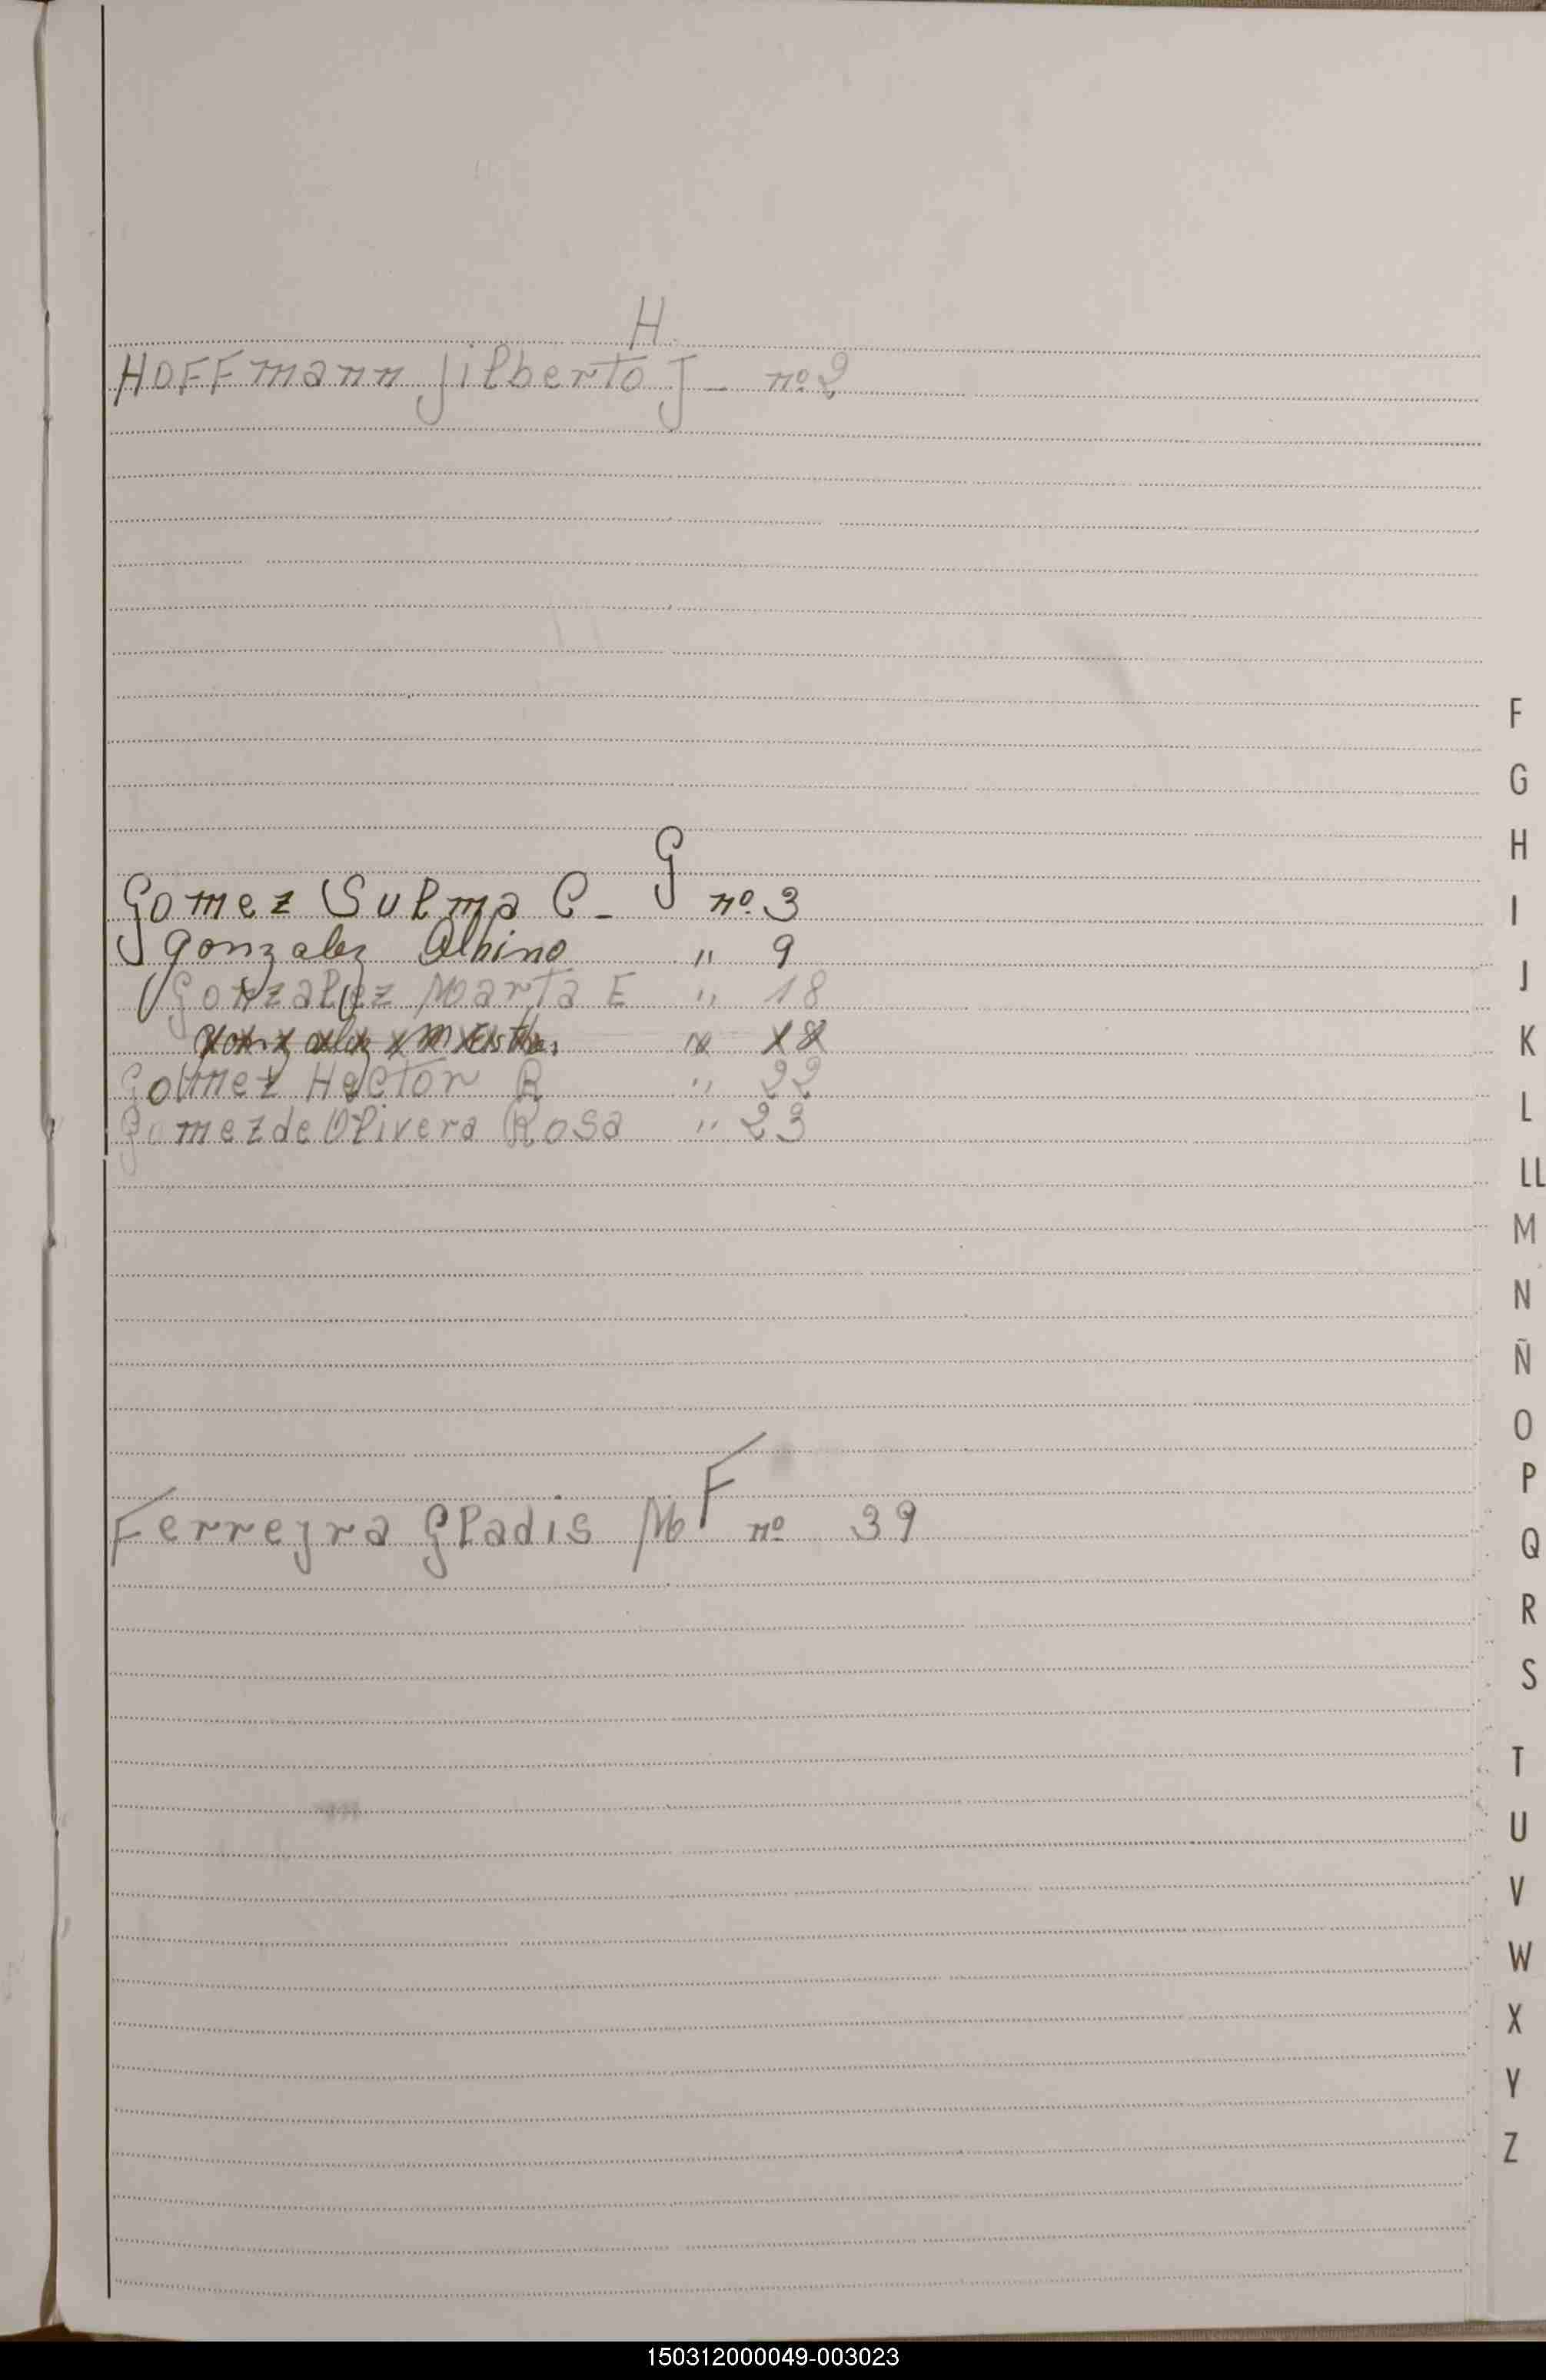 H.
HOFFmann Jilberto J - nº 2
G
Gomez Sulma C - nº 3
Gonzalez Albino " 9
Gonzalez Marta E " 18
Gonzalez M Esther " 18
Gomez Hector R " 22
Gomez de Olivera Rosa " 23
F
Ferreyra Gladis M nº 39
F
G
H
I
J
K
L
LL
M
N
Ñ
O
P
Q
R
S
T
U
V
W
X
Y
Z
150312000049-003023